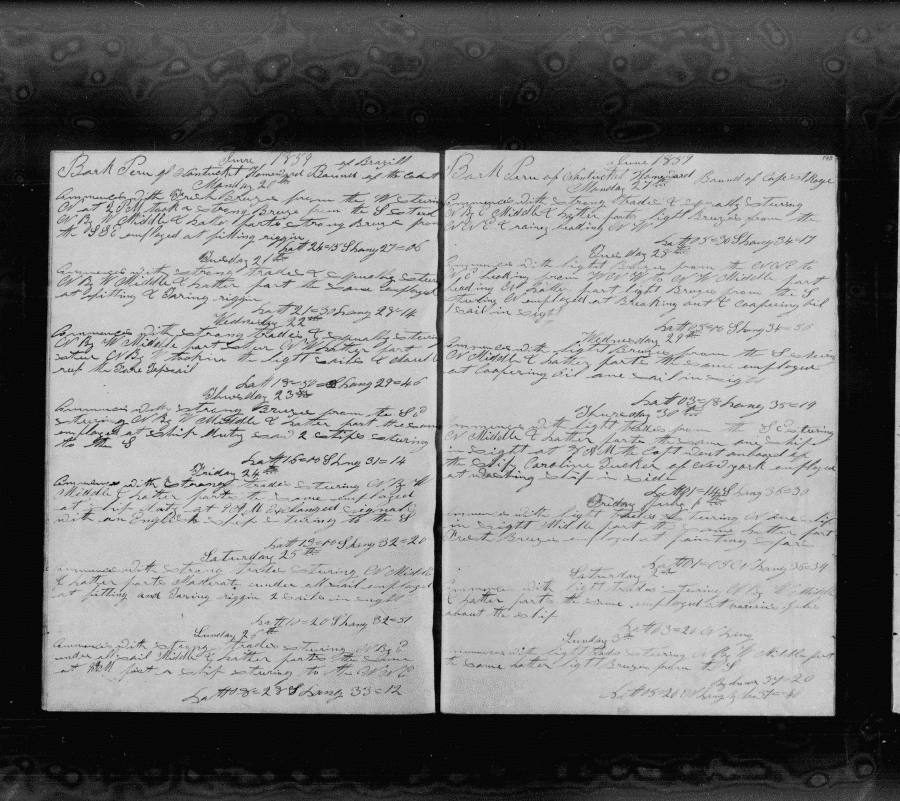 June 1859
Bark Peru of Nantucket Homeward Bound of the Coast of Brazill
Monday 20th
Commences with Fresh Breeze from the W stering
N at 2 PM took a strong Breeze from the S sterd
N By W Middle & Latter parts strong Breeze from
the SSE employed at fitting riggin
Latt 24=15 S Long 27=06
Tuesday 21st
Commences with strong trades & squally stering
N By W Middle & Latter part the same Employed
at fitting & taring riggin
Latt 21=30 Long 29=14
Wednesday 22nd
Commences with strong trades & squally stering
N By W Middle part ster N W Latter part
ster N By W takin the light sails & double
reef the Fore topsail
Latt 18=50 S Long 29=46
Thursday 23rd
Commences with strong Breeze from the S E
stering N By W Middle & Latter part the same
employed at ship duty saw 2 ships stering
to the S
Latt 16=10 S Long 31=14
Friday 24th
Commences with strong Trades stering N By W
Middle & Latter parts the same employed
at ship duty at 7 AM exchanged signals
with an English ship stering to the S
Latt 13=10 S Long 32=20
Saturday 25th
Commences with strong trades stering N Middle
& Latter parts Moderate under all sail employed
at fitting and taring riggin 2 sails in sight
Latt 10=20 S Long 32=31
Sunday 26th
Commences with strong trades stering N By E
under all sail Middle & Latter parts the same
at part a ship stering to the
Latt 08=28 S Long 33=12
June 1859
Bark Peru of Nantucket Homeward Bound of Cape St Roge
Monday 27th
Commences with strong trades & squally stering
N By E Middle & Latter parts light Breeze from the
& rainey heading N W
Latt 05=30 S Long 34=17
Tuesday 28th
Commences with light Breeze from the to
heading from to Middle part
heading N Latter part light Breeze from the S
stering N employed at Breaking out & Coopering oil
1 sail in sight
Latt 05=16 Long 34=56
Wednesday 29th
Commences with light Breeze from the S stering
N Middle & Latter parts the same employed
at Coopering oil one sail in sight
Latt 03=18 Long 35=19
Thursday 30th
Commences with light trades from the S E stering
N Middle & Latter parts the same one ship
in sight at 7 AM the Capt went onboard of
the ship Caroline Tucker of New york employed
at washing ship in side
Latt 01=14 S Long 36=30
Friday 1st
Commences with light trades stering N one ship
in sight Middle part the same Latter part
Fresh Breeze employed at painting spars
Long 36=39
Saturday 2nd
Commences with light trades stering N By W Middle
& Latter parts the same employed at various jobs
about the ship
Latt 03=20 N Long
Sunday 3rd
Commences with light trads stering N By W Middle part
the same Latter light Breeze from the S